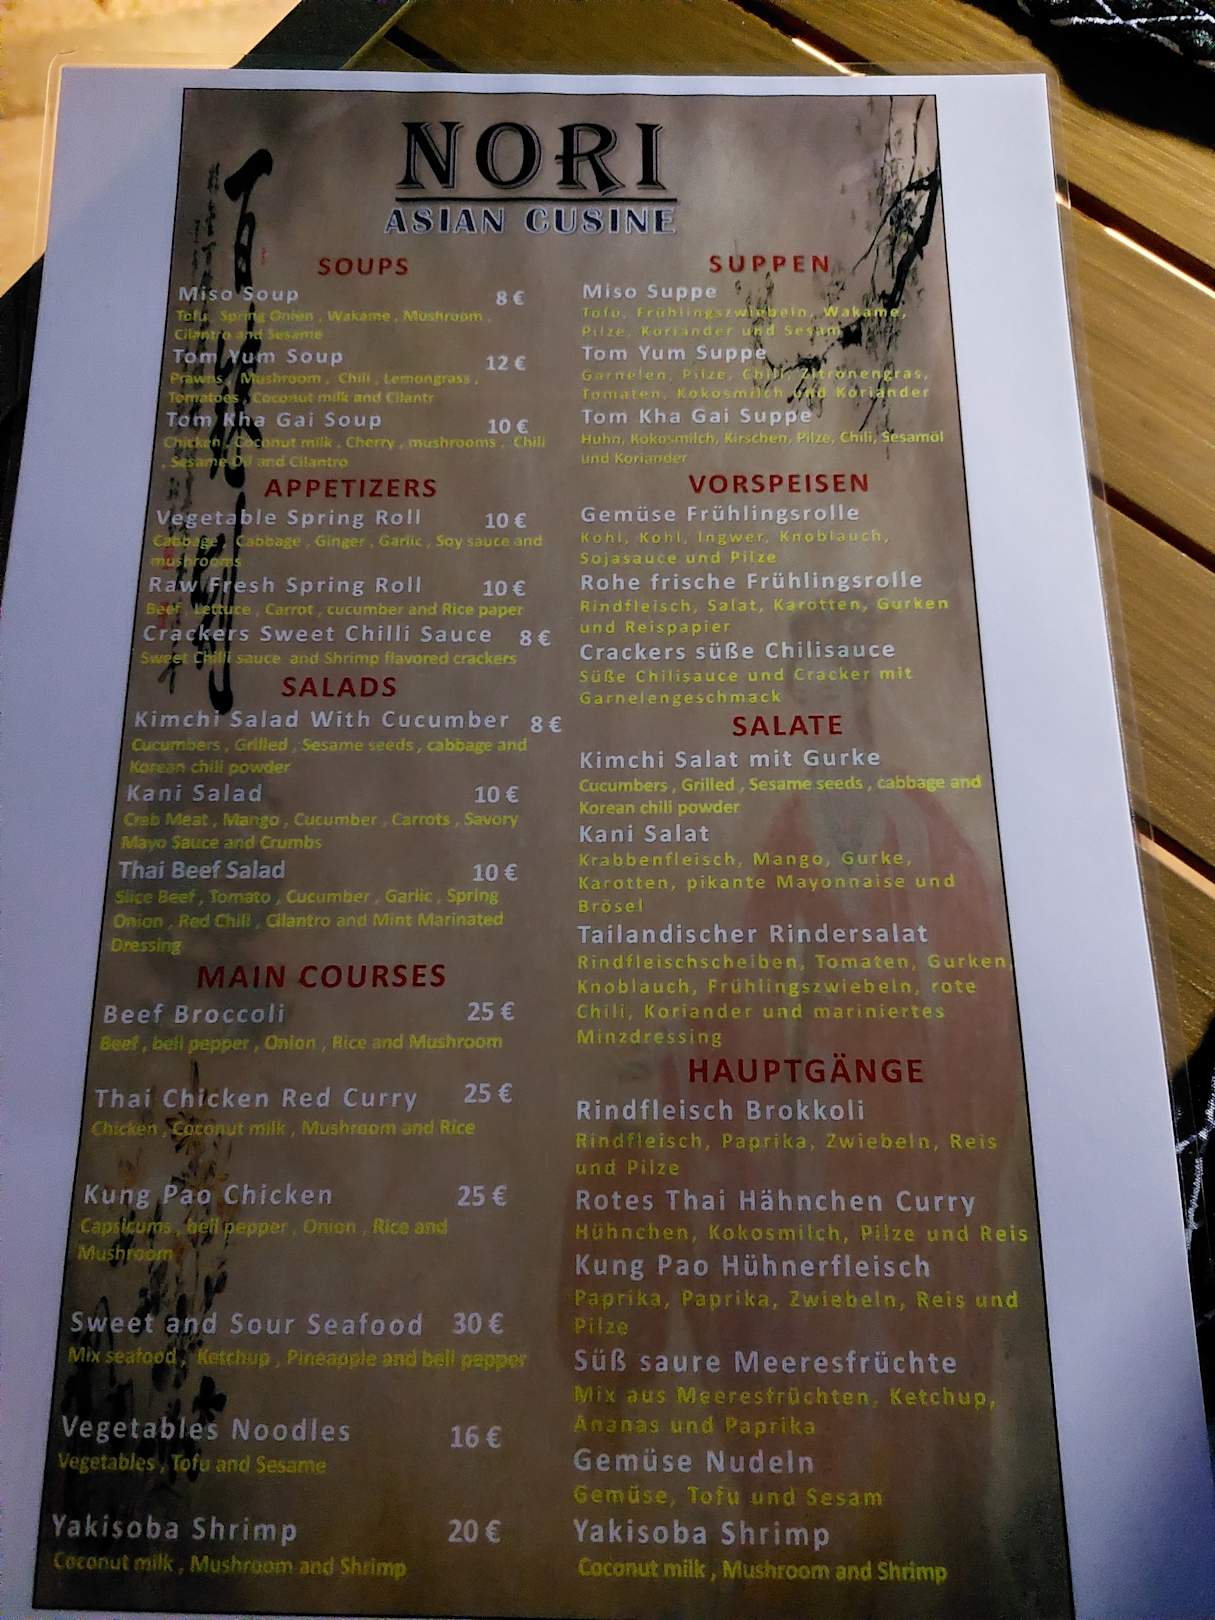 NORI
ASIAN CUSINE
SOUPS
Miso Soup 8 €
Tofu , Spring Onion , Wakame , Mushroom ,
Cilantro and Sesame
Tom Yum Soup 12 €
Prawns , Mushroom , Chili , Lemongrass ,
Tomatoes , Coconut milk and Cilantr
Tom Kha Gai Soup 10 €
Chicken , Coconut milk , Cherry , mushrooms , Chili
, Sesame Oil and Cilantro
APPETIZERS
Vegetable Spring Roll 10 €
Cabbage , Cabbage , Ginger , Garlic , Soy sauce and
mushrooms
Raw Fresh Spring Roll 10 €
Beef , Lettuce , Carrot , cucumber and Rice paper
Crackers Sweet Chilli Sauce 8 €
Sweet Chilli sauce and Shrimp flavored crackers
SALADS
Kimchi Salad With Cucumber 8 €
Cucumbers , Grilled , Sesame seeds , cabbage and
Korean chili powder
Kani Salad 10 €
Crab Meat , Mango , Cucumber , Carrots , Savory
Mayo Sauce and Crumbs
Thai Beef Salad 10 €
Slice Beef , Tomato , Cucumber , Garlic , Spring
Onion , Red Chili , Cilantro and Mint Marinated
Dressing
MAIN COURSES
Beef Broccoli 25 €
Beef , bell pepper , Onion , Rice and Mushroom
Thai Chicken Red Curry 25 €
Chicken , Coconut milk , Mushroom and Rice
Kung Pao Chicken 25 €
Capsicums , bell pepper , Onion , Rice and
Mushroom
Sweet and Sour Seafood 30 €
Mix seafood , Ketchup , Pineapple and bell pepper
Vegetables Noodles 16 €
Vegetables , Tofu and Sesame
Yakisoba Shrimp 20 €
Coconut milk , Mushroom and Shrimp
SUPPEN
Miso Suppe
Tofu, Frühlingszwiebeln, Wakame,
Pilze, Koriander und Sesam
Tom Yum Suppe
Garnelen, Pilze, Chili, Zitronengras,
Tomaten, Kokosmilch und Koriander
Tom Kha Gai Suppe
Huhn, Kokosmilch, Kirschen, Pilze, Chili, Sesamöl
und Koriander
VORSPEISEN
Gemüse Frühlingsrolle
Kohl, Kohl, Ingwer, Knoblauch,
Sojasauce und Pilze
Rohe frische Frühlingsrolle
Rindfleisch, Salat, Karotten, Gurken
und Reispapier
Crackers süße Chilisauce
Süße Chilisauce und Cracker mit
Garnelengeschmack
SALATE
Kimchi Salat mit Gurke
Cucumbers , Grilled , Sesame seeds , cabbage and
Korean chili powder
Kani Salat
Krabbenfleisch, Mango, Gurke,
Karotten, pikante Mayonnaise und
Brösel
Tailandischer Rindersalat
Rindfleischscheiben, Tomaten, Gurken,
Knoblauch, Frühlingszwiebeln, rote
Chili, Koriander und mariniertes
Minzdressing
HAUPTGÄNGE
Rindfleisch Brokkoli
Rindfleisch, Paprika, Zwiebeln, Reis
und Pilze
Rotes Thai Hähnchen Curry
Hühnchen, Kokosmilch, Pilze und Reis
Kung Pao Hühnerfleisch
Paprika, Paprika, Zwiebeln, Reis und
Pilze
Süß saure Meeresfrüchte
Mix aus Meeresfrüchten, Ketchup,
Ananas und Paprika
Gemüse Nudeln
Gemüse, Tofu und Sesam
Yakisoba Shrimp
Coconut milk , Mushroom and Shrimp